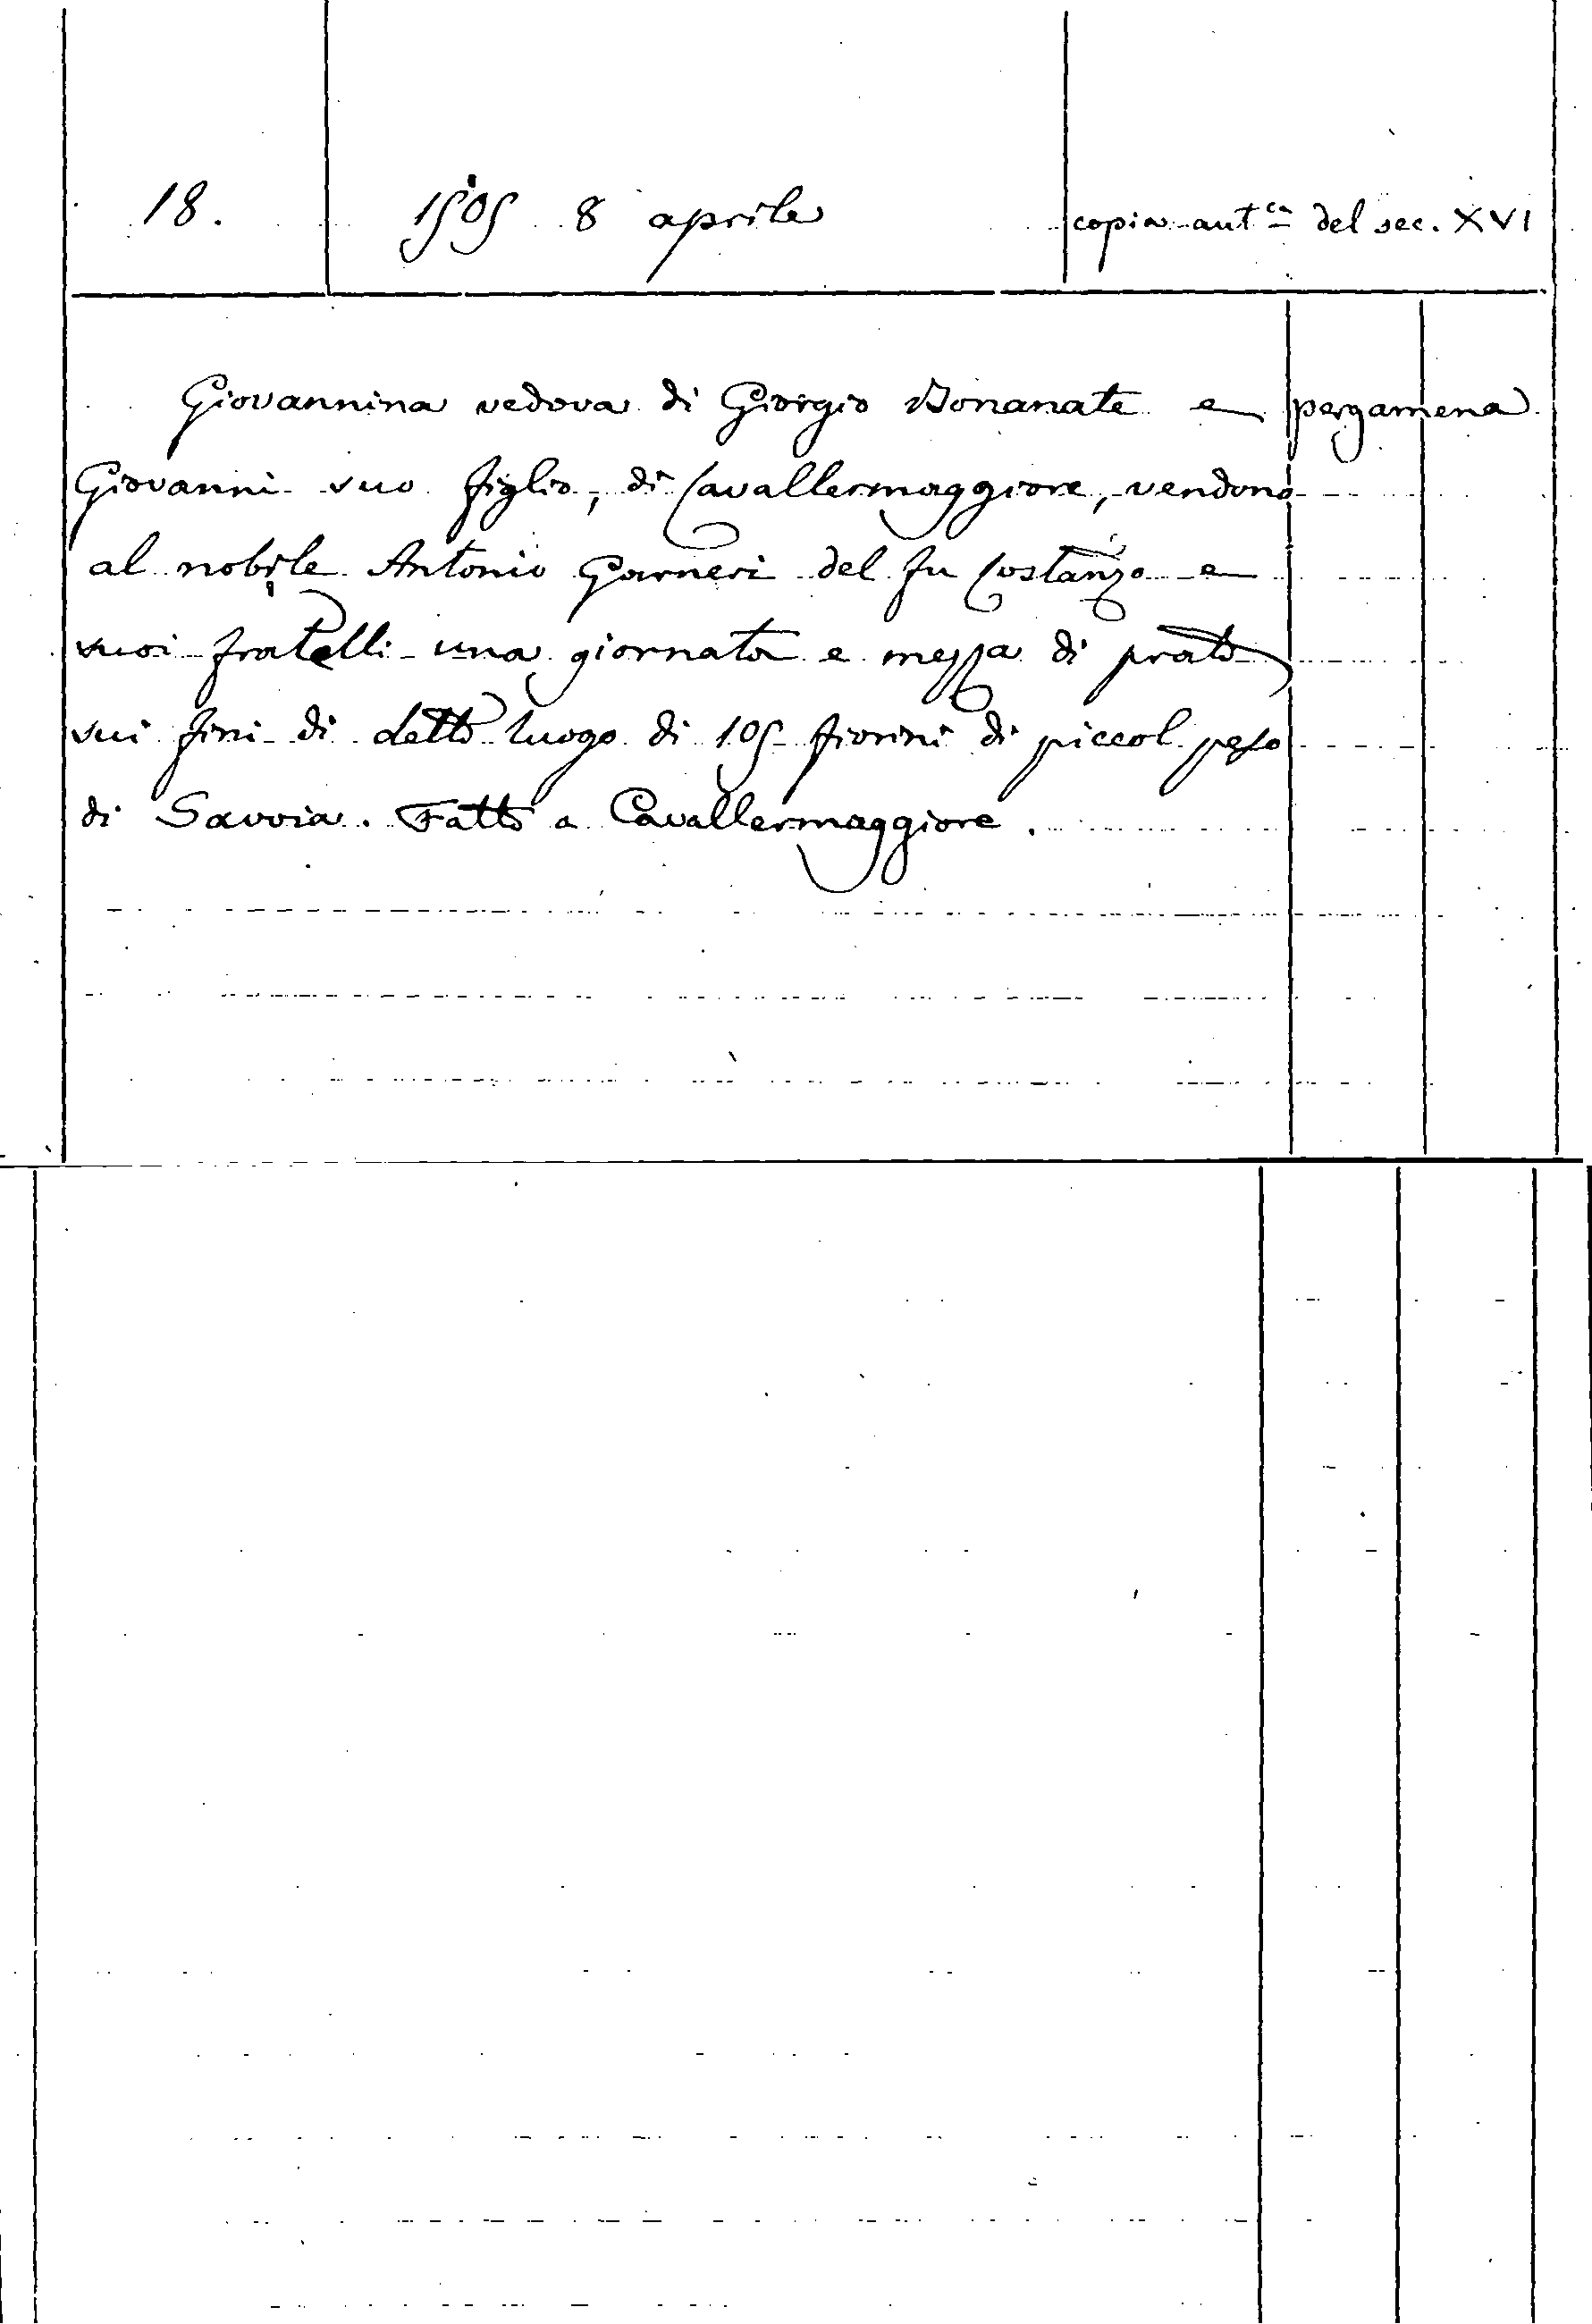 18. 1505 8 aprile copia aut.ca del sec. XVI
Giovannina vedova di Giorgio Bonanate e pergamena
Giovanni suo figlio, di Cavallermaggiore, vendono
al nobile Antonio Garneri del fu Costanzo e
suoi fratelli una giornata e mezza di prato
sui fini di detto luogo di 105 fiorini di piccol peso
di Savoia. Fatto a Cavallermaggiore.